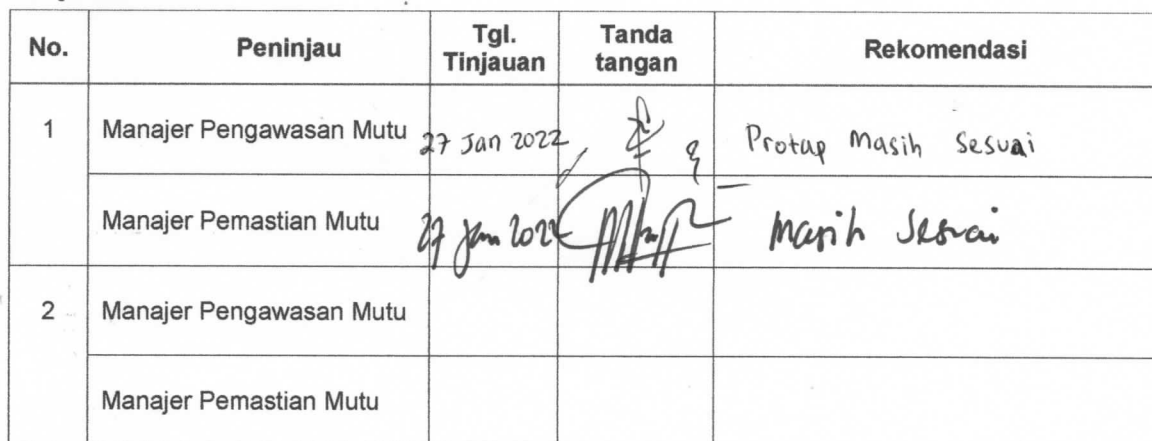 No. Peninjau Tgl. Tinjauan Tanda tangan Rekomendasi
1 Manajer Pengawasan Mutu 27 Jan 2022 Protap Masih Sesuai
Manajer Pemastian Mutu 27 Jan 2022 Masih Sesuai
2 Manajer Pengawasan Mutu
Manajer Pemastian Mutu